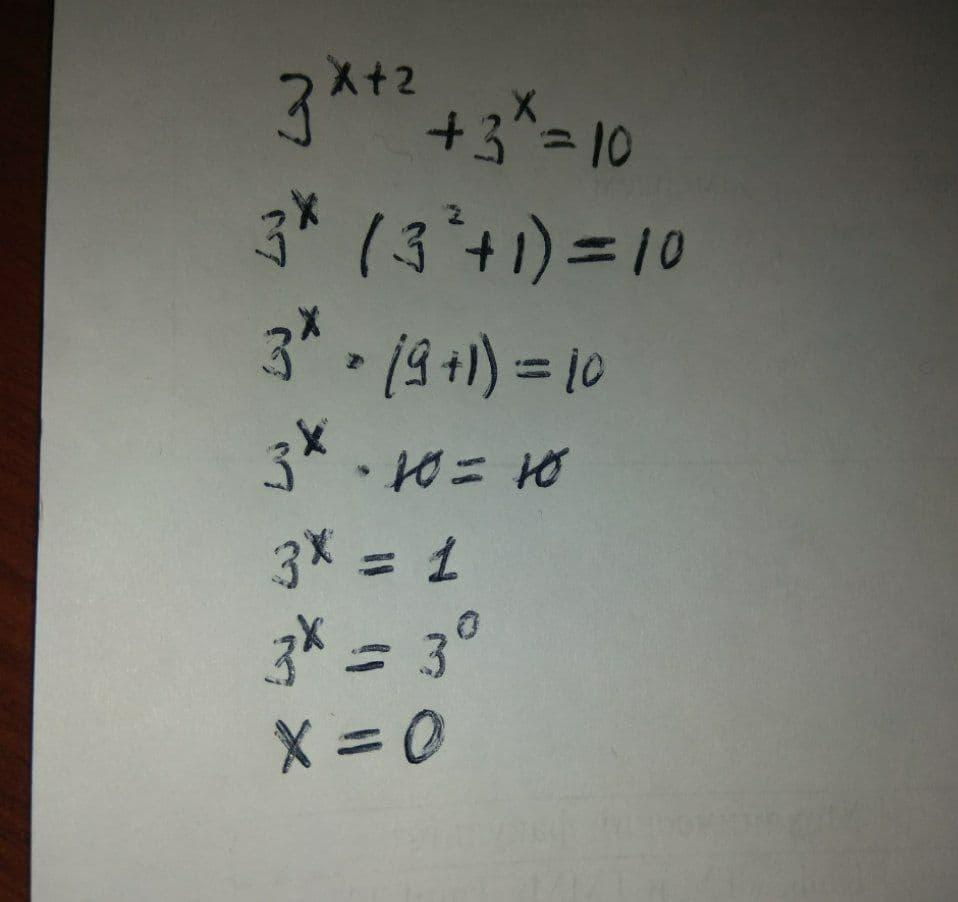 3^{x+2} + 3^x = 10
3^x (3^2 + 1) = 10
3^x · (9 + 1) = 10
3^x · 10 = 10
3^x = 1
3^x = 3^0
x = 0